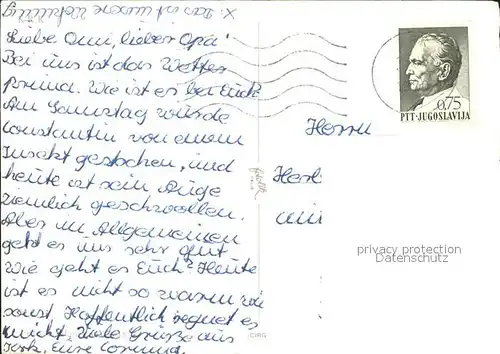 X: Das ist unsere Wohnung
Liebe Omi, lieber Opa!
Bei uns ist das Wetter
prima. Wie ist es bei Euch?
Am Samstag wurde
Constantin von einem
Insekt gestochen, und
heute ist sein Auge
ziemlich geschwollen.
Aber im Allgemeinen
geht es uns sehr gut.
Wie geht es Euch? Heute
ist es nicht so warm wie
sonst. Hoffentlich regnet es
nicht. Viele Grüße aus
Eure
0.75
PTT-JUGOSLAVIJA
Herrn
privacy protection
Datenschutz